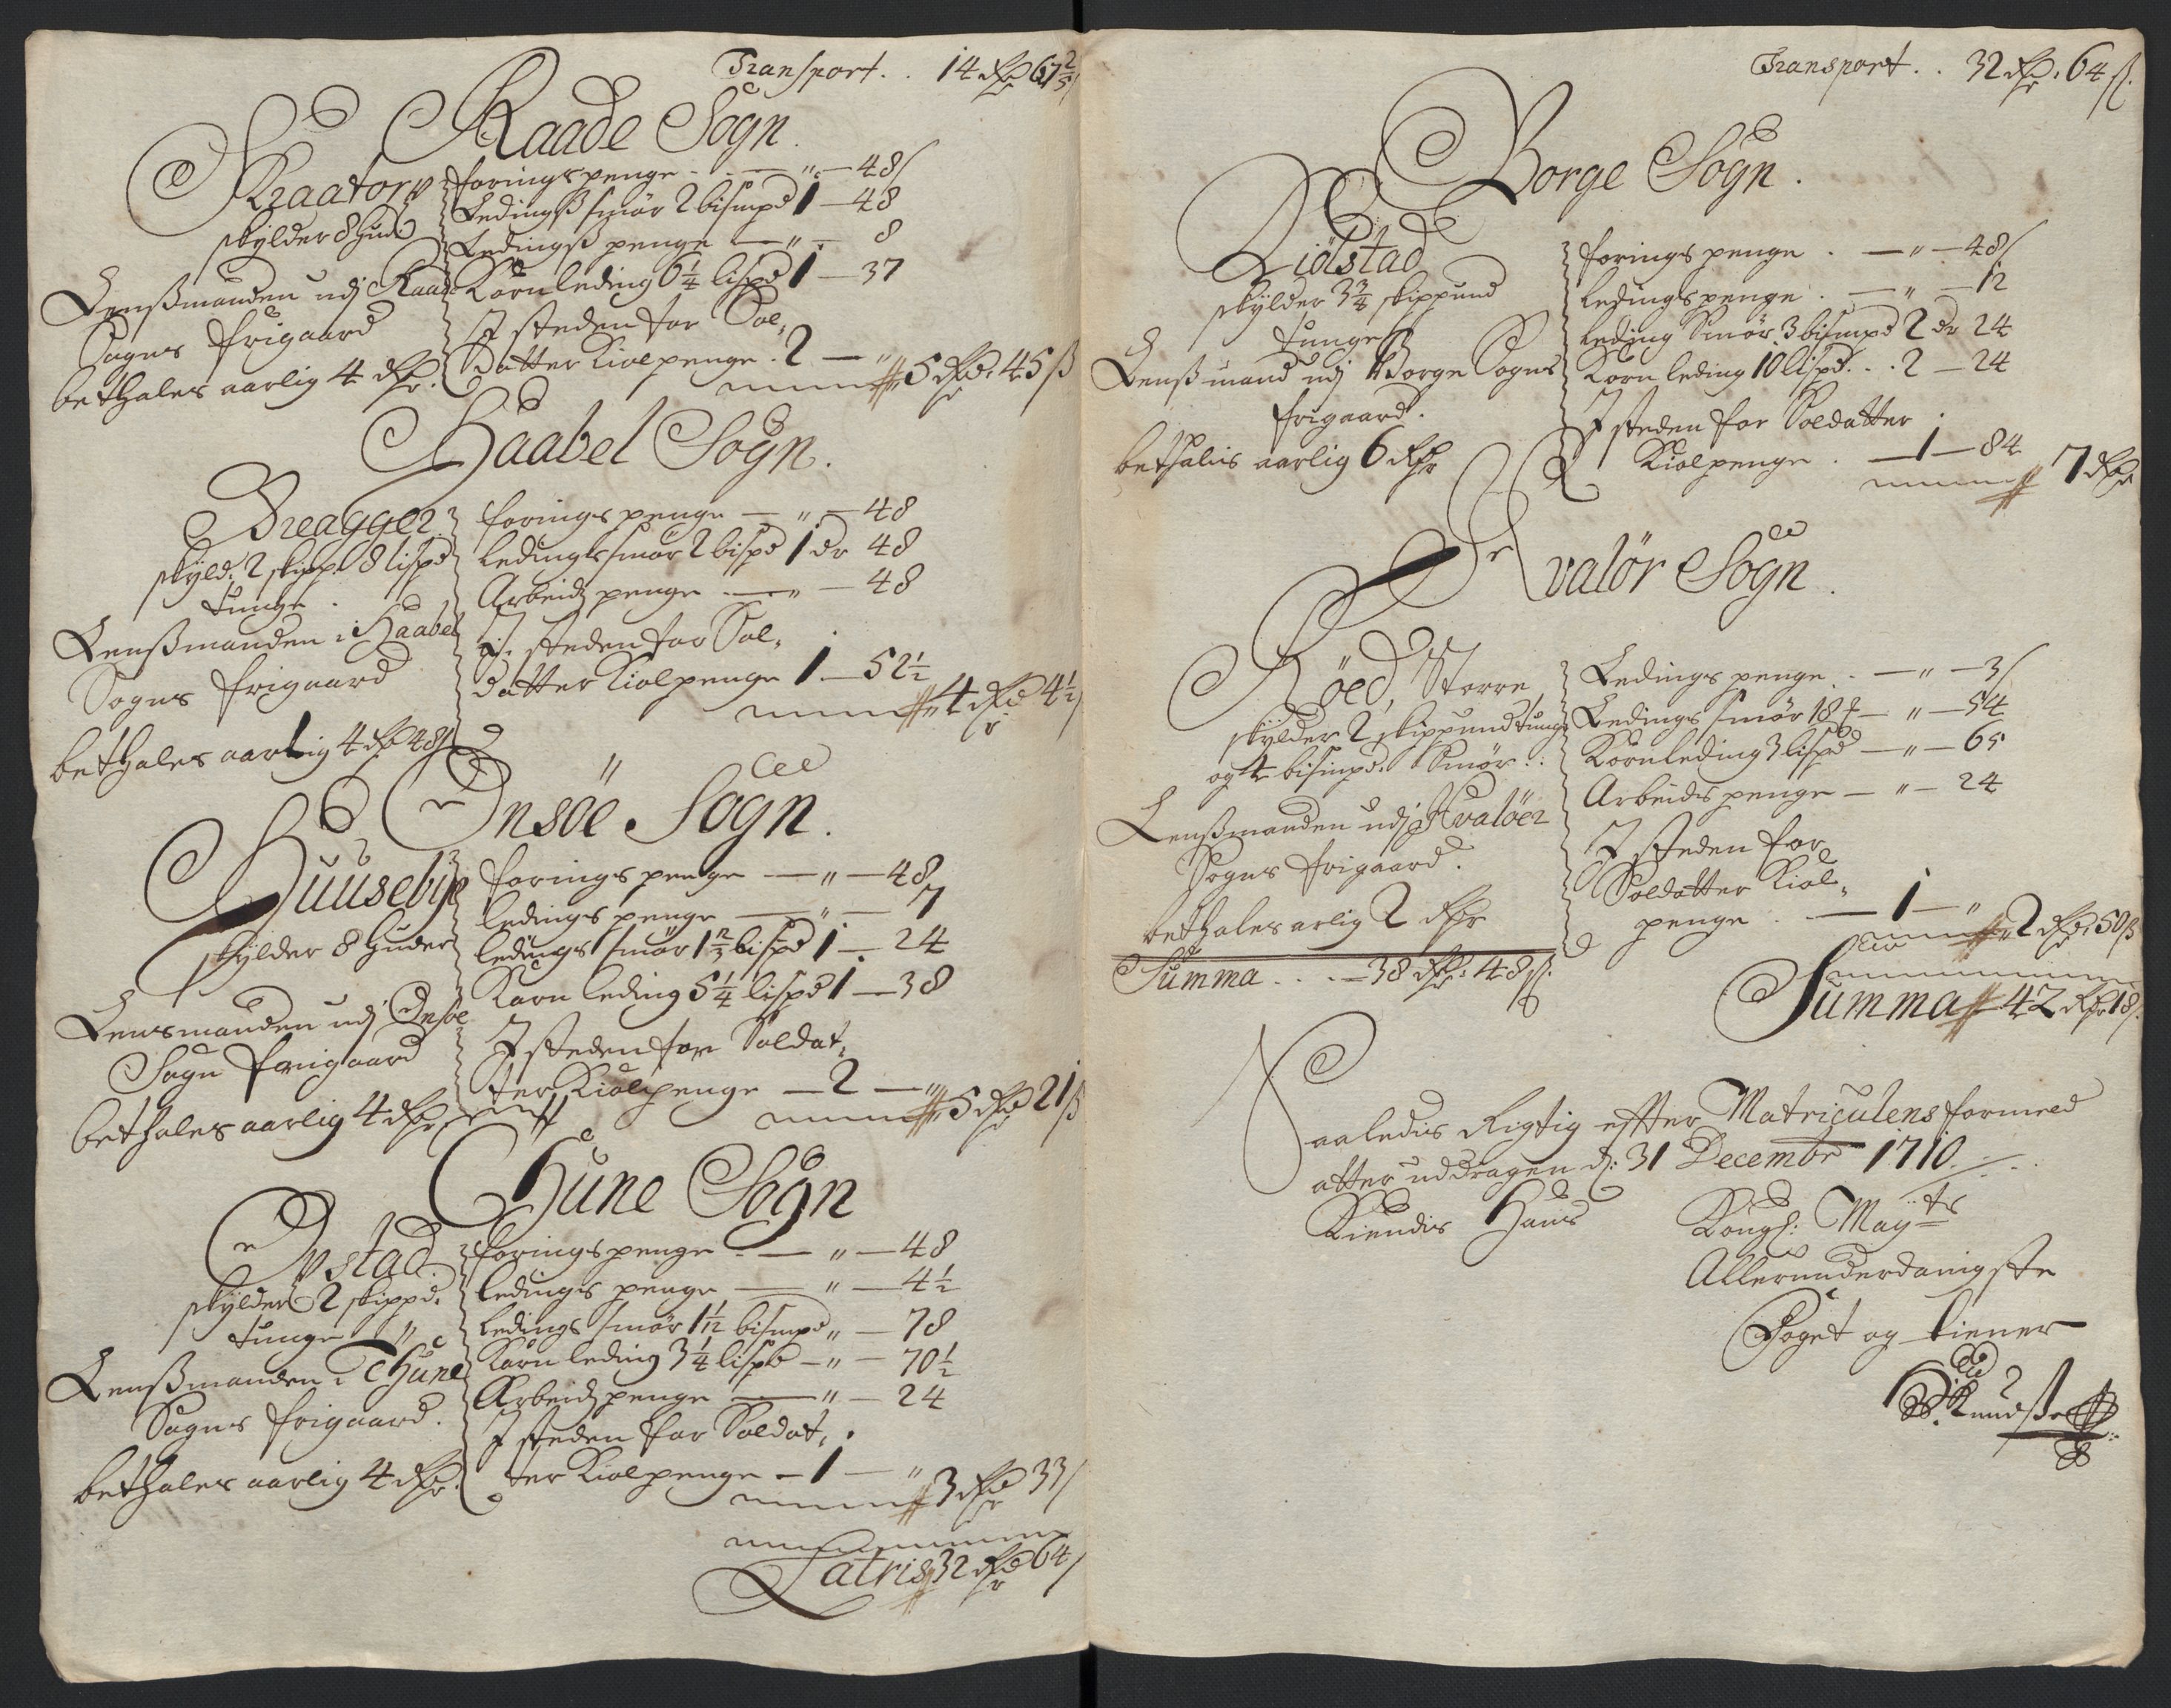 Transport . . 14 Rdr 67 2/5 ß
Raade Sogn
Kraatorp
skylder 8 huder
Lenßmanden udj Raade
Sogns frigaard
bethales aarlig 4 Rdr.
foringspenge . — " — 48 ß
Ledingß smör 2 bismpd 1 — 48
Ledingß penge — " — 8
Kornleding 6 1/4 lispd 1 — 37
I steden for Sol-
datter Kiolpenge . 2 — "
5 Rdr: 45 ß
Haabel Sogn.
skyld: 2 skipp: 8 lispd
tunge .
Lenßmanden i Haabel
Sogns frigaard
bethales aarlig 4 Rdr 48 ß
forings penge — " — 48
Ledings smör 2 bispd 1 dr 48
Arbeids penge — " — 48
I steden for Sol-
datter Kiolpenge 1 — 52 1/2
4 Rdr 4 1/2 ß
Onsöe Sogn.
Huusebye
skylder 8 huder
Lensmanden udj Onsöe
Sogn frigaard
bethales aarlig 4 Rdr
forings penge — " — 48
ledings penge — " — 7
ledings smör 1 2/3 bispd 1 — 24
Korn leding 5 1/4 lispd 1 — 38
I steden for Soldat-
ter Kiolpenge — 2 — "
5 Rdr 21 ß
Thune Sogn
Opstad
skylder 2 skippd.
tunge
Lenßmanden i Thune
Sogns frigaard.
bethales aarlig 4 Rdr.
forings penge — " — 48
ledings penge — " — 4 1/2
ledings smör 1 1/12 bismpd " — 78
Korn leding 3 1/4 lispd — " — 70 1/2
Arbeids penge — " — 24
I steden for Soldat-
ter Kiolpenge — 1 — "
3 Rdr 33 ß
Latris 32 Rdr 64 ß
Transport . . 32 Rdr: 64 ß.
Borge Sogn.
skylder 3 3/4 skippund
tunge
Lenßmand udj Borge Sogns
frigaard.
bethalis aarlig 6 Rdr
forings penge . — " — 48 ß
ledings penge . — " — 12
leding Smör 3 bismpd 2 dr 24
Korn leding 10 lispd . . 2 — 24
I steden for Soldatter
Kiolpenge . — 1 — 84
7 Rdr
Hvalör Sogn.
Röed, Storre
skylder 2 skippund tunge
og 4 bismpd. Smör . :
Lenßmanden udj Hvalöer
Sogns frigaard.
bethales arlig 2 Rdr
Summa . . . — 38 Rdr: 48 ß.
Ledings penge . — " — 3 ß
Ledings smör 18 — " — 54
Kornleding 3 lispd — " — 65
Arbeids penge — " — 24
I steden for
Soldatter Kiol-
penge . — 1 — "
2 Rdr: 50 ß
Summa 42 Rdr 18 ß.
Saaledis Rigtig effter Matriculens formeld
atter uddragen d: 31 Decembr 1710.
Kiendis Hans Kongl: Mayts
Allerunderdanigste
Foget og tiener